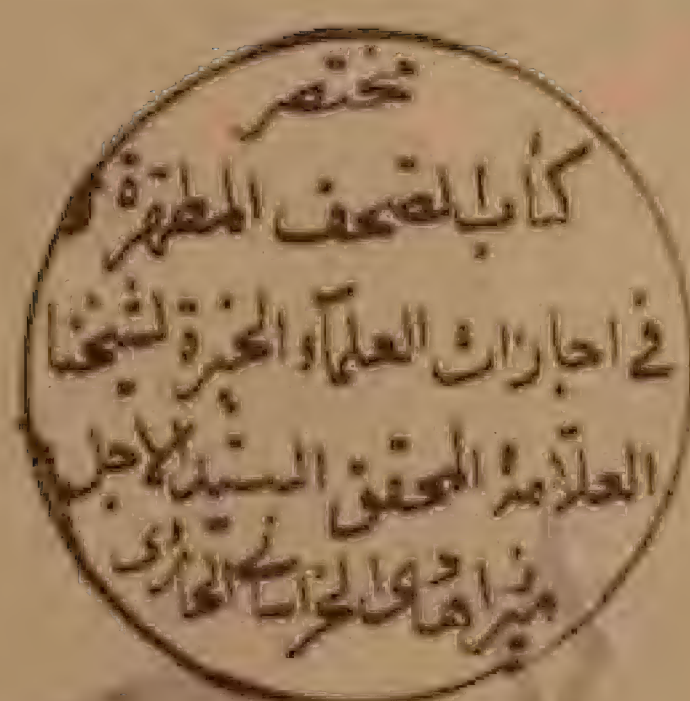 مختصر
كتاب الصحف المطهرة
في اجازات العلماء الخيرة لشيخنا
العلامة المحقق السيد الاجل
ميرزا هادى الخراسانى الحائرى